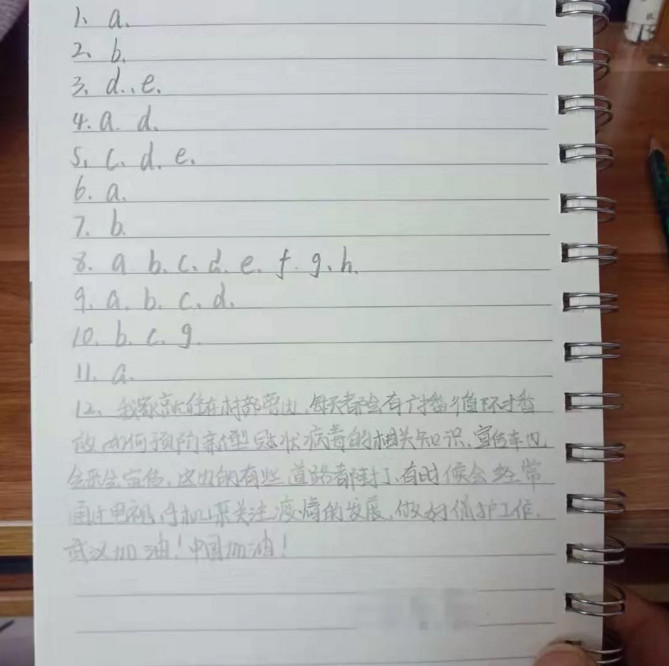 1. a.
2. b.
3. d. e.
4. a. d.
5. c. d. e.
6. a.
7. b.
8. a b. c. d. e. f. g. h.
9. a. b. c. d.
10. b. c. g.
11. a.
12. 我家就住在村部旁边, 每天都会有广播循环播
放如何预防新型冠状病毒的相关知识, 宣传车也
会来宣传, 这边的有些道路都封了, 有时候会经常
通过电视, 手机来关注疫情的发展, 做好保护工作.
武汉加油! 中国加油!